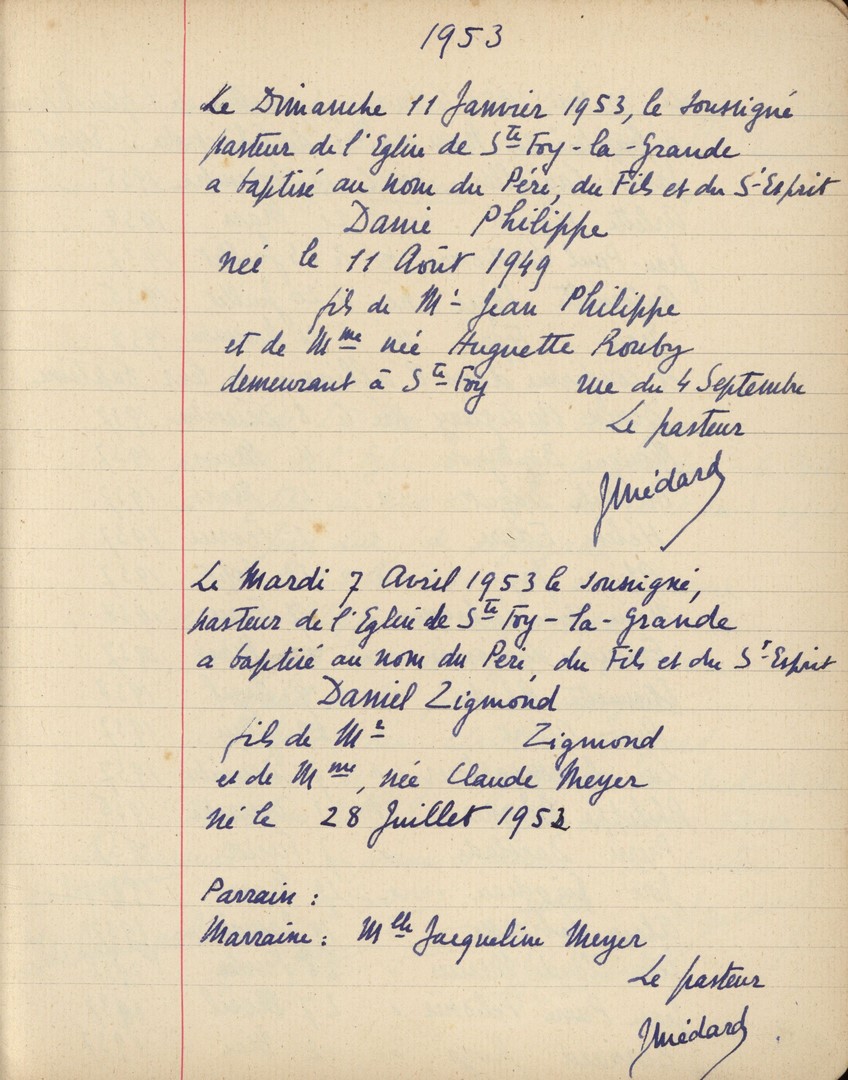 1953
Le Dimanche 11 Janvier 1953, le soussigné
pasteur de l'Eglise de Ste Foy-la-Grande
a baptisé au nom du Père, du Fils et du St-Esprit
Danie Philippe
née le 11 Août 1949
fils de Mr Jean Philippe
et de Mme née Huguette Rouby
demeurant à Ste Foy rue du 4 Septembre
Le pasteur
JMédard
Le Mardi 7 Avril 1953 le soussigné,
pasteur de l'Eglise de Ste Foy-la-Grande
a baptisé au nom du Père, du Fils et du St-Esprit
Daniel Zigmond
fils de Mr Zigmond
et de Mme, née Claude Meyer
né le 28 Juillet 1952
Parrain :
Marraine : Mlle Jacqueline Meyer
Le pasteur
JMédard